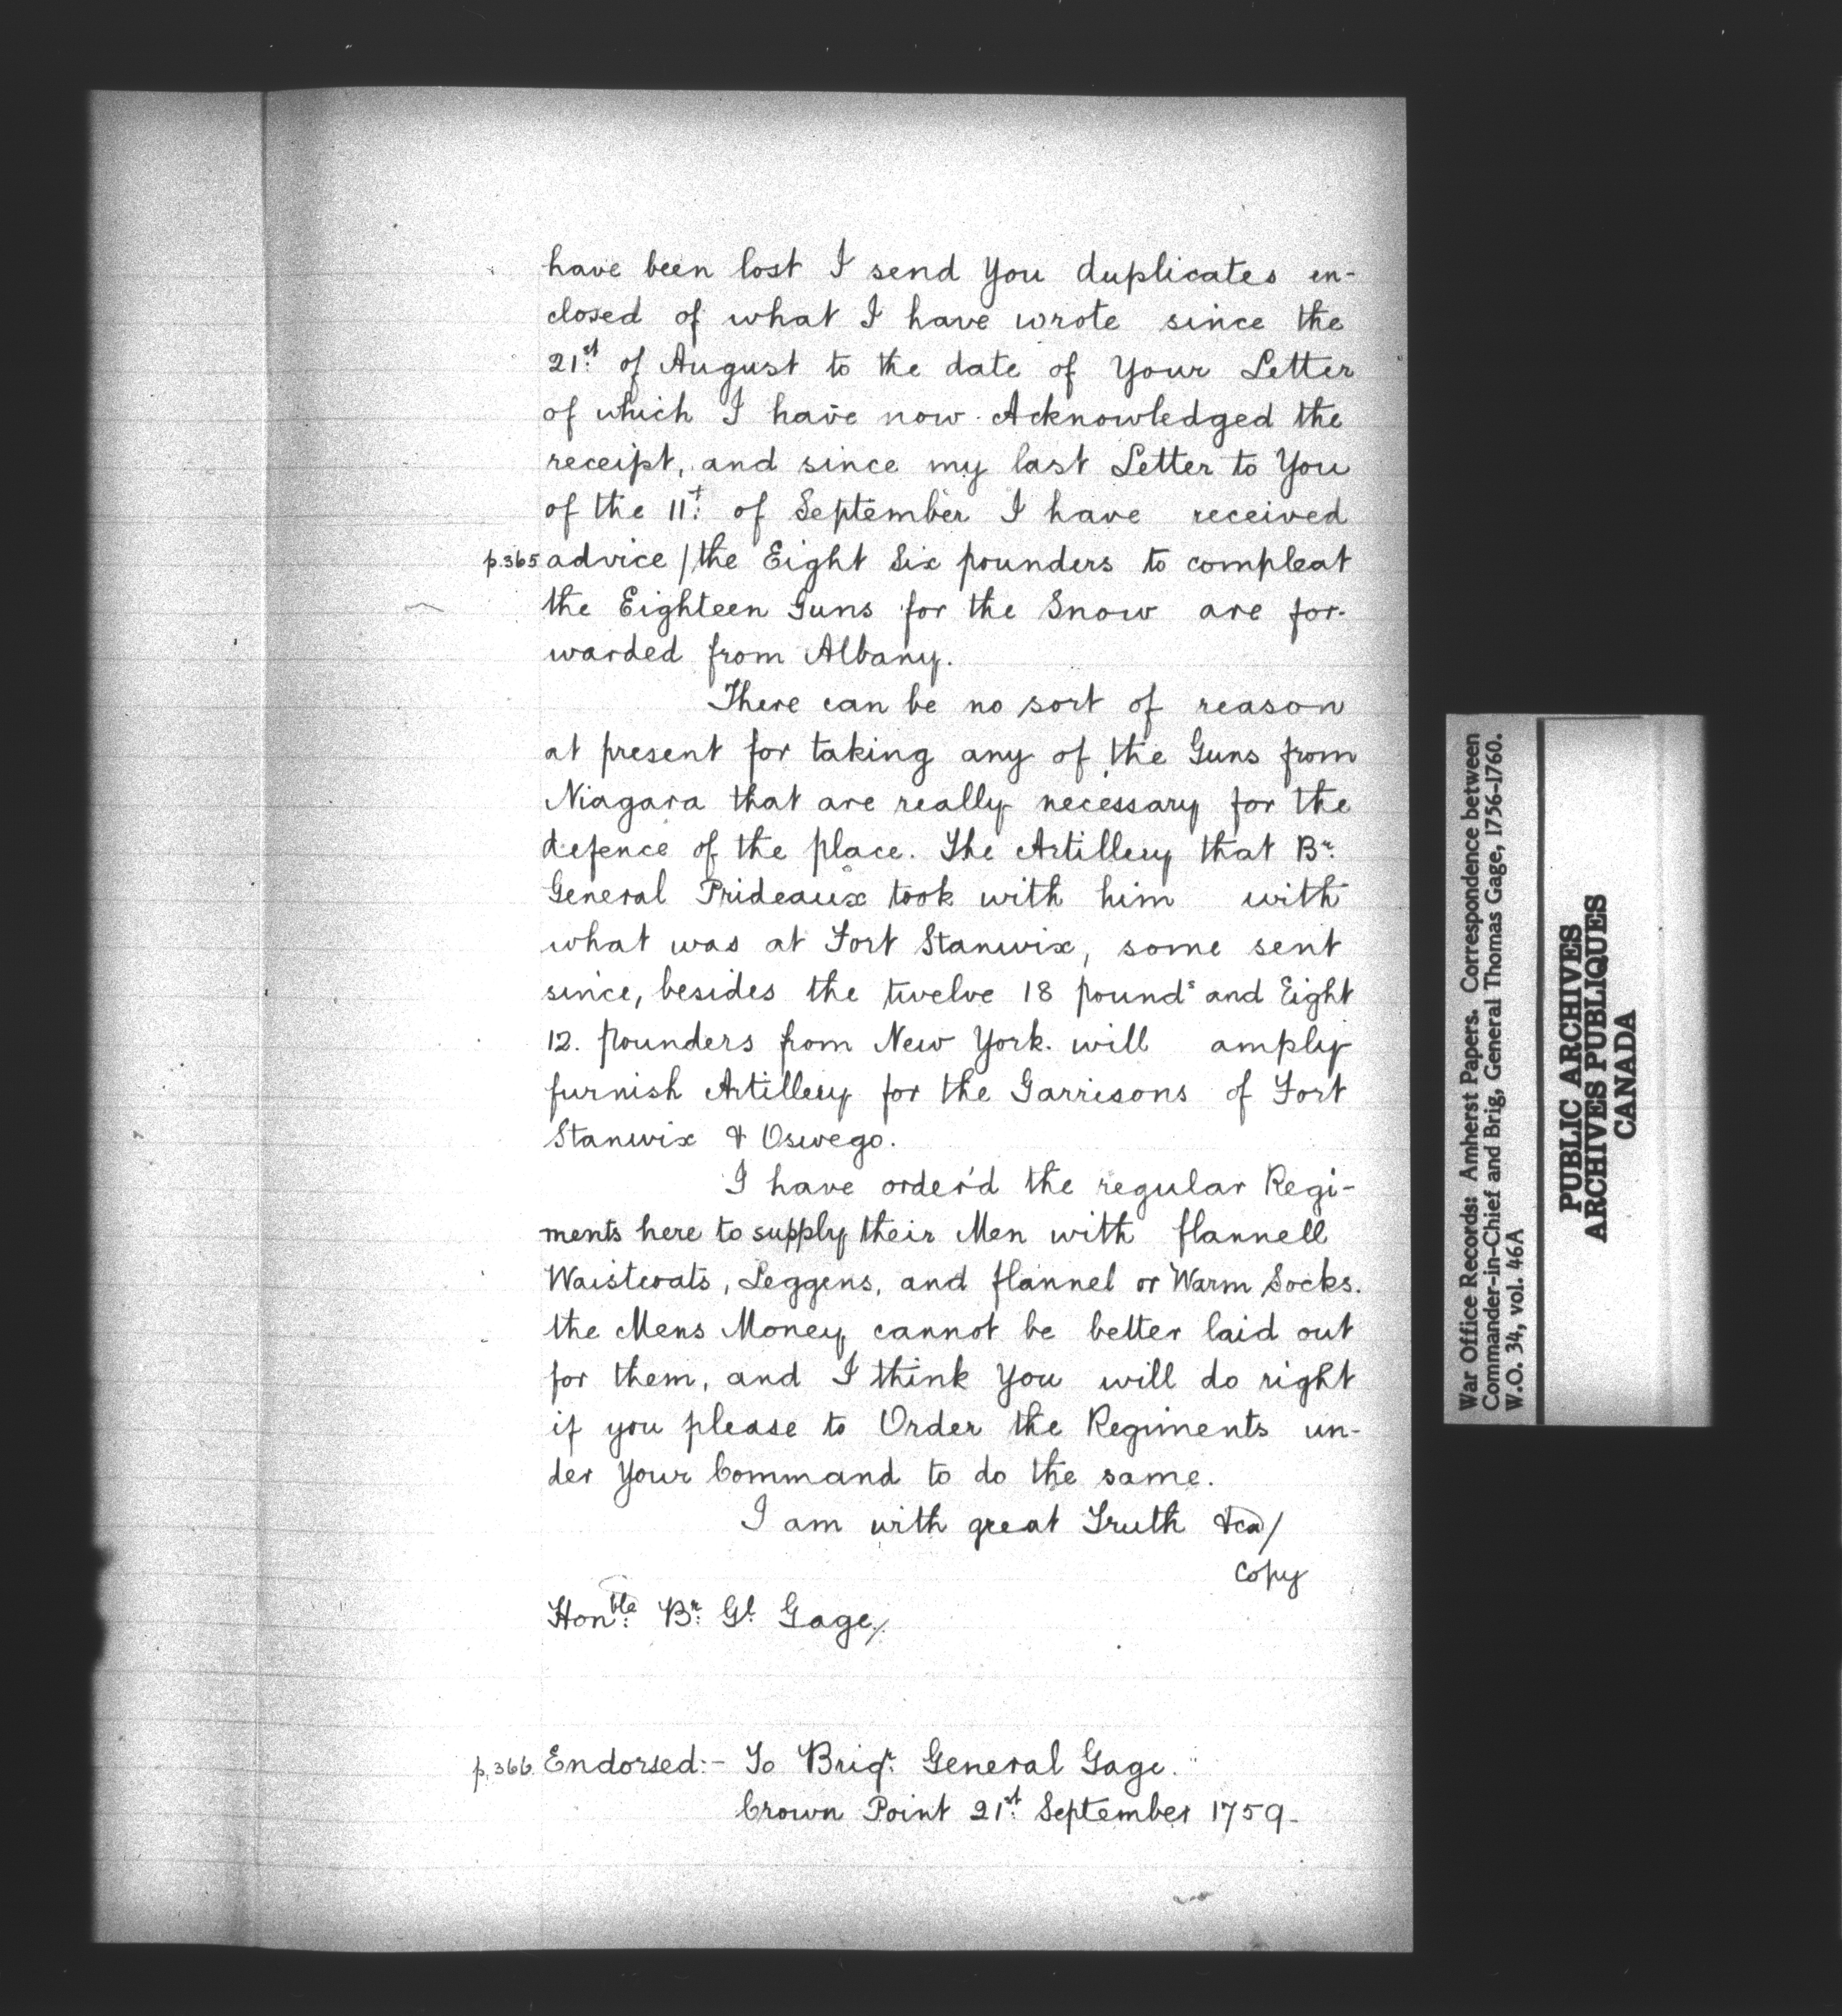 have been lost I send You duplicates en-
closed of what I have wrote since the
21st. of August to the date of Your Letter
of which I have now Acknowledged the
receipt, and since my last Letter to You
of the 11t. of September I have received
p.365 advice / the Eight Six pounders to compleat
the Eighteen Guns for the Snow are for-
warded from Albany.
There can be no sort of reason
at present for taking any of the Guns from
Niagara that are really necessary for the
defence of the place. The Artillery that Br.
General Prideaux took with him with
what was at Fort Stanwix, some sent
since, besides the twelve 18 pounds and Eight
12. pounders from New York. will amply
furnish Artillery for the Garrisons of Fort
Stanwix & Oswego.
I have order'd the regular Regi-
ments here to supply their Men with flannell
Waistcoats, Leggens, and flannel or Warm Socks.
the Mens Money cannot be better laid out
for them, and I think You will do right
if you please to Order the Regiments un-
der Your Command to do the same.
I am with great Truth &ca/
Copy
Honble. Br. Gl. Gage/.
p.366. Endorsed:- To Brigr. General Gage.
Crown Point 21st. September 1759-
War Office Records: Amherst Papers. Correspondence between
Commander-in-Chief and Brig, General Thomas Gage, 1756-1760.
W.O. 34, vol. 46A
PUBLIC ARCHIVES
ARCHIVES PUBLIQUES
CANADA